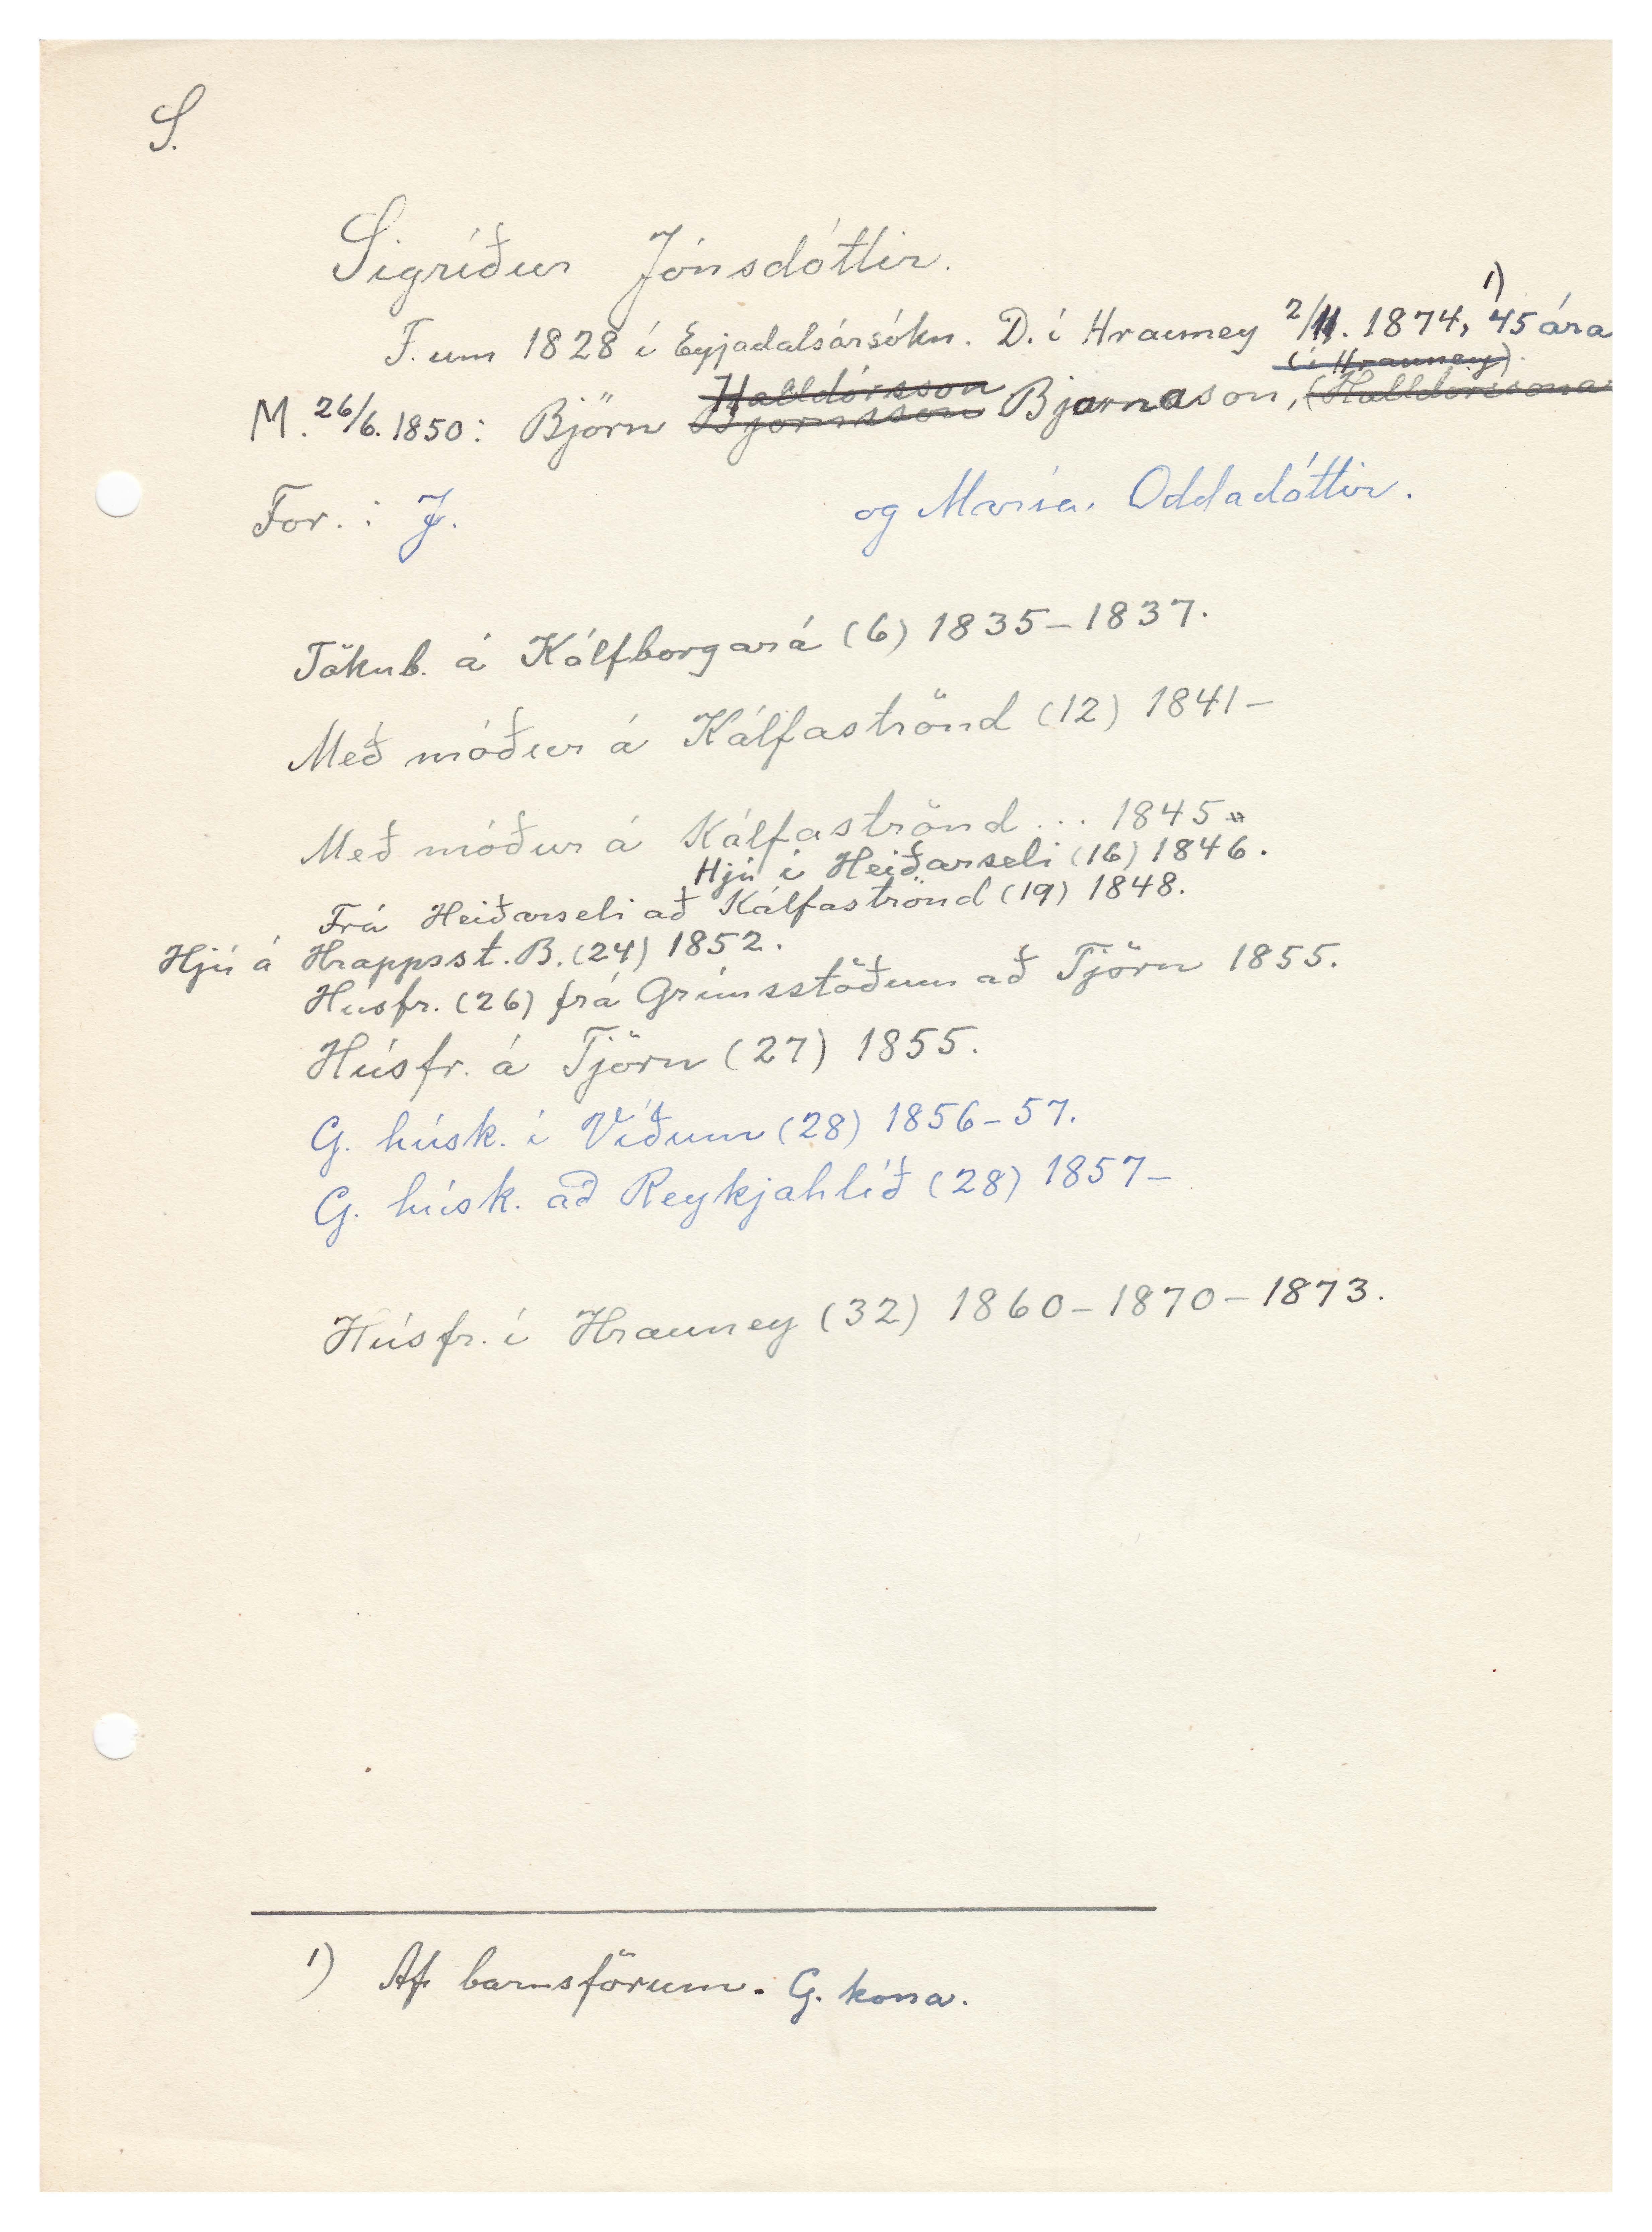 S.
Sigríður Jónsdóttir.
F. um 1828 í Eyjadalsársókn. D. í Hrauney 2/11. 1874, 1) 45 ára
(í Hrauney).
M. 26/6. 1850: Björn Bjornsson Halldórsson Bjarnason, (Halldórssona
For.: J. og María Oddadóttir.
Tökub. á Kálfborgará (6) 1835-1837.
Með móður á Kálfaströnd (12) 1841-
Með móður á Kálfaströnd ... 1845-
Hjú í Heiðarseli (16) 1846.
Frá Heiðarseli að Kálfaströnd (19) 1848.
Hjú á Hrappsst. B. (24) 1852.
Húsfr. (26) frá Grímsstöðum að Tjörn 1855.
Húsfr. á Tjörn (27) 1855.
G. húsk. í Víðum (28) 1856-57.
G. húsk. að Reykjahlíð (28) 1857-
Húsfr. í Hrauney (32) 1860-1870-1873.
1) Af barnsförum. G. kona.